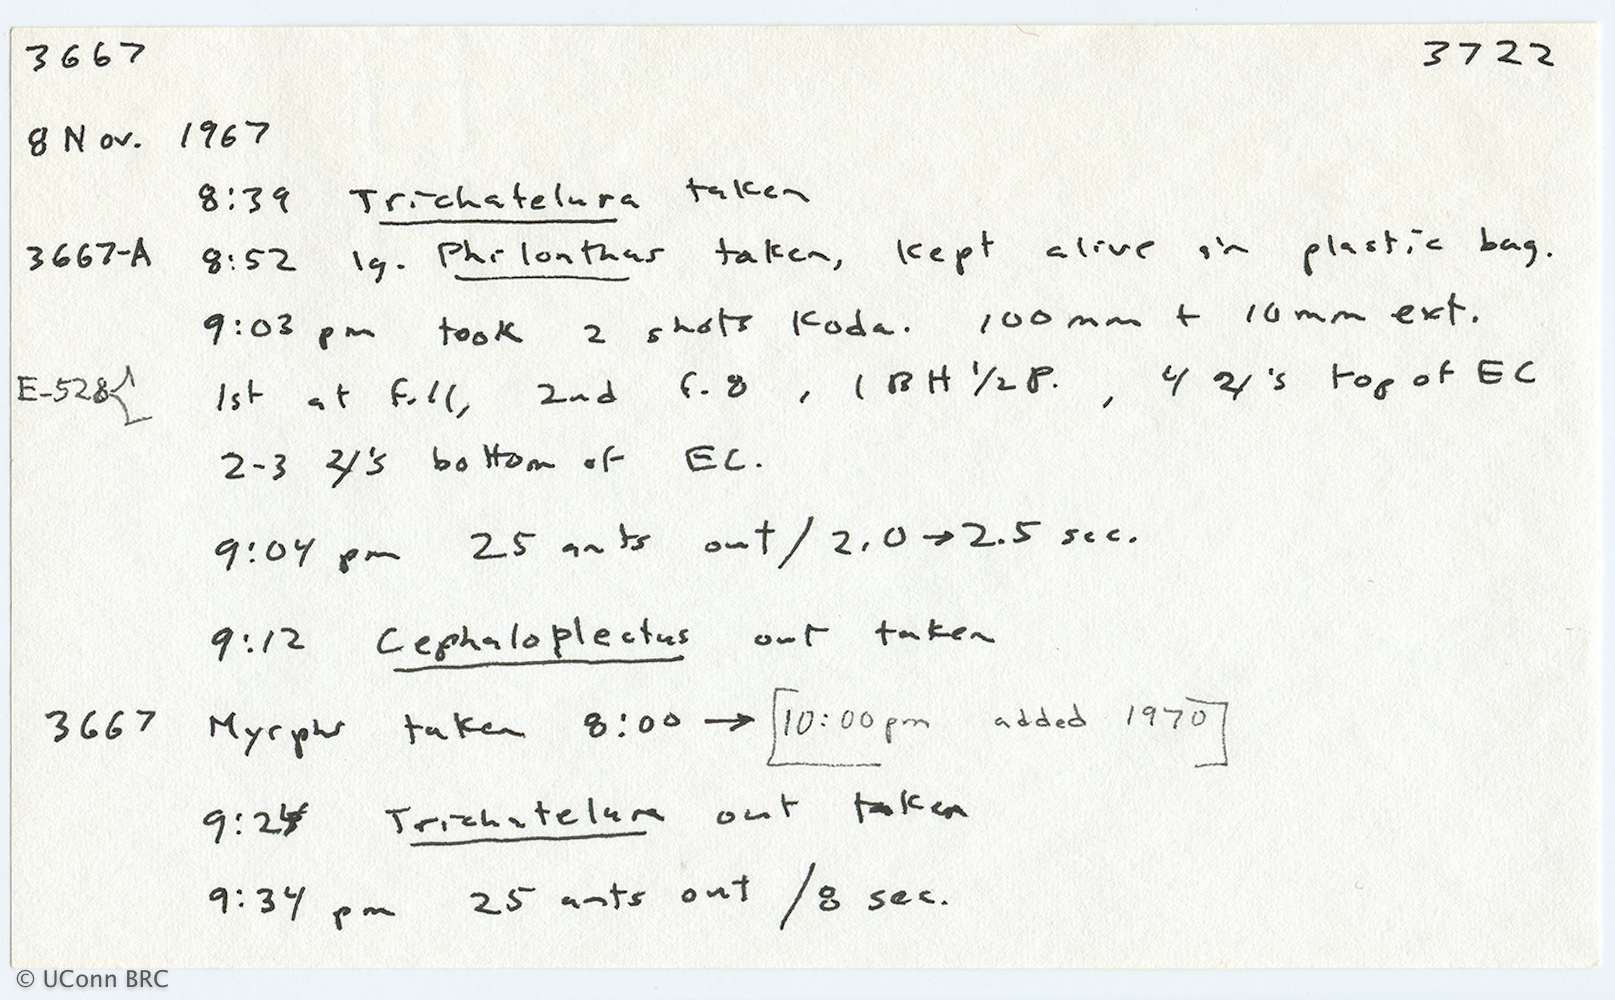 3667 3722
8 Nov. 1967
8:39 Trichatelura taken
3667-A 8:52 lg. Philonthus taken, kept alive in plastic bag.
9:03 pm took 2 shots Koda. 100mm + 10mm ext.
E-528 1st at f.11, 2nd f.8, 1 BH 1/2 P., 4 21's top of EC
2-3 21's bottom of EC.
9:04 pm 25 ants out / 2.0 → 2.5 sec.
9:12 Cephaloplectus out taken
3667 Myrphs taken 8:00 → [10:00pm added 1970]
Trichatelura out taken
9:34 pm 25 ants out / 8 sec.
© UConn BRC